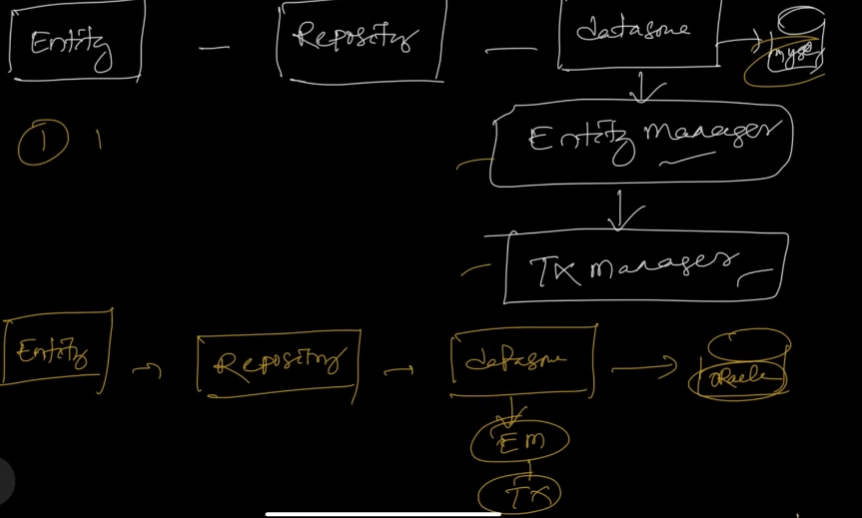 Entity
Repository
datasource
mysql
① 1
Entity Manager
TX Manager
Entity
Repository
datasource
oracle
EM
TX